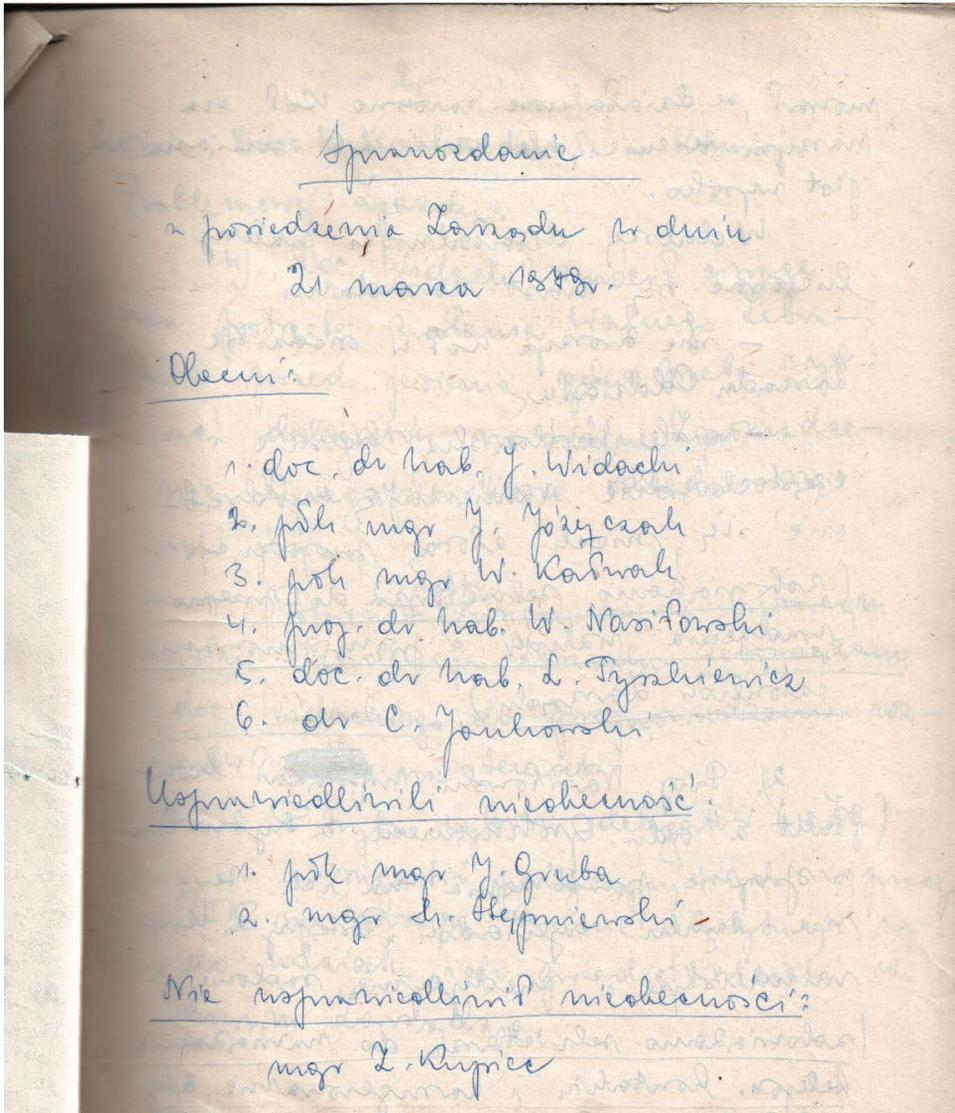 Sprawozdanie
z posiedzenia Zarządu w dniu
21 marca 1979r.
Obecni:
1. doc. dr hab. J. Widacki
2. płk mgr J. Józyczak
3. płk mgr W. Kaśwak
4. prof. dr hab. W. Nasiłowski
5. doc. dr hab. L. Tyszkiewicz
6. dr C. Jankowski
Usprawiedliwili nieobecność:
1. płk mgr J. Gruba
2. mgr St. Stępniewski
Nie usprawiedliwił nieobecności:
mgr Z. Kupiec